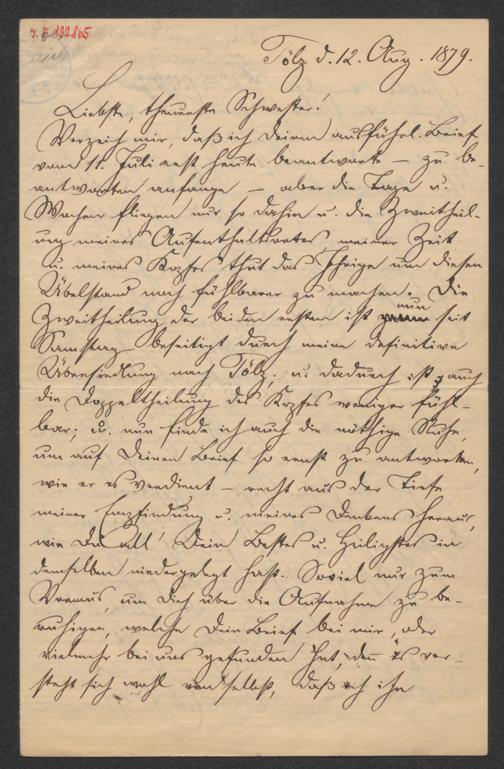 I. N. 132865
Tölz d. 12. Aug. 1879.
Liebste, theuerste Schwester!
Verzeih mir, daß ich Deinen ausführl. Brief
vom 11. Juli erst heute beantworte – zu be-
antworten anfange – aber die Tage u.
Wochen fliegen nur so dahin u. die Zweitheil-
ung meines Aufenthaltsortes meiner Zeit
u. meines Kopfes thut das Ihrige um diesen
Übelstand noch fühlbarer zu machen. Die
Zweitheilung der beiden ersten ist nun seit
Samstag beseitigt durch meine definitive
Übersiedlung nach Tölz, u. dadurch ist auch
die Doppeltheilung des Kopfes weniger fühl-
bar; u. nun finde ich auch die nöthige Ruhe,
um auf Deinen Brief so ernst zu antworten,
wie er es verdient – recht aus der Tiefe
meiner Empfindung u. meines Denkens heraus,
wie Du all' Dein Bestes u. Heiligstes in
demselben niedergelegt hast. Soviel nur zum
Voraus, um Dich über die Aufnahme zu be-
ruhigen, welche Dein Brief bei mir, oder
vielmehr bei uns gefunden hat, den es ver-
steht sich wohl von selbst, daß ich ihn